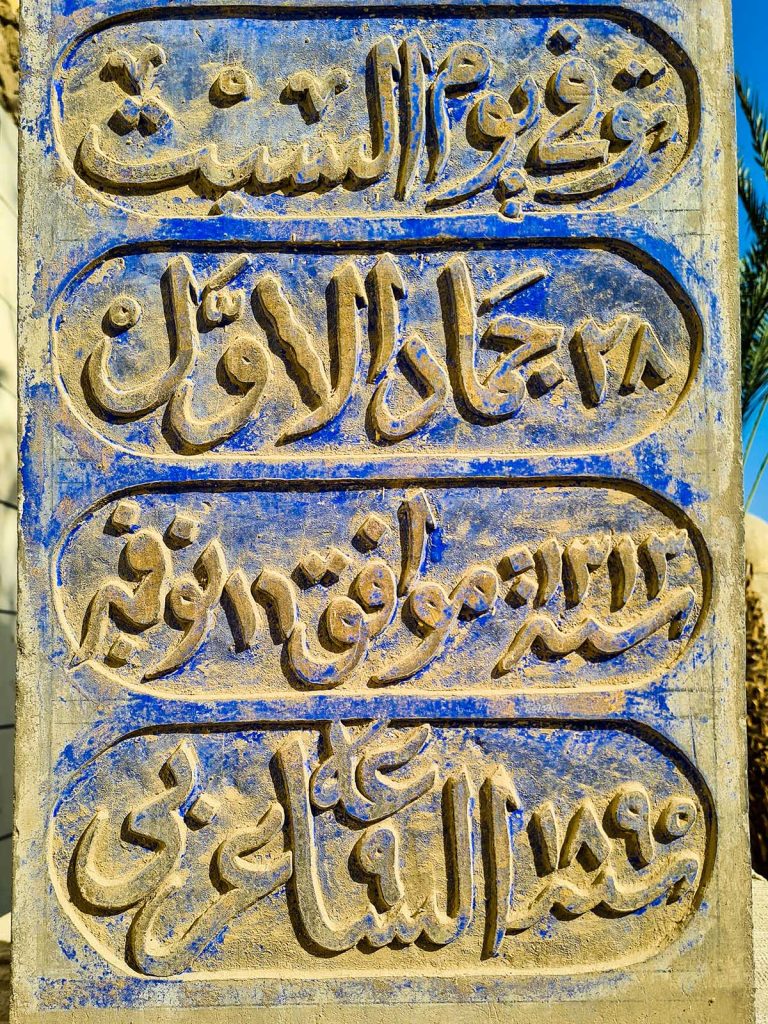 توفي يوم السبت
٢٨ جماد الاوّل
سنة ١٣١٣ موافق ١٦ نوفمبر
سنة ١٨٩٥ الساعة ٩ عربي